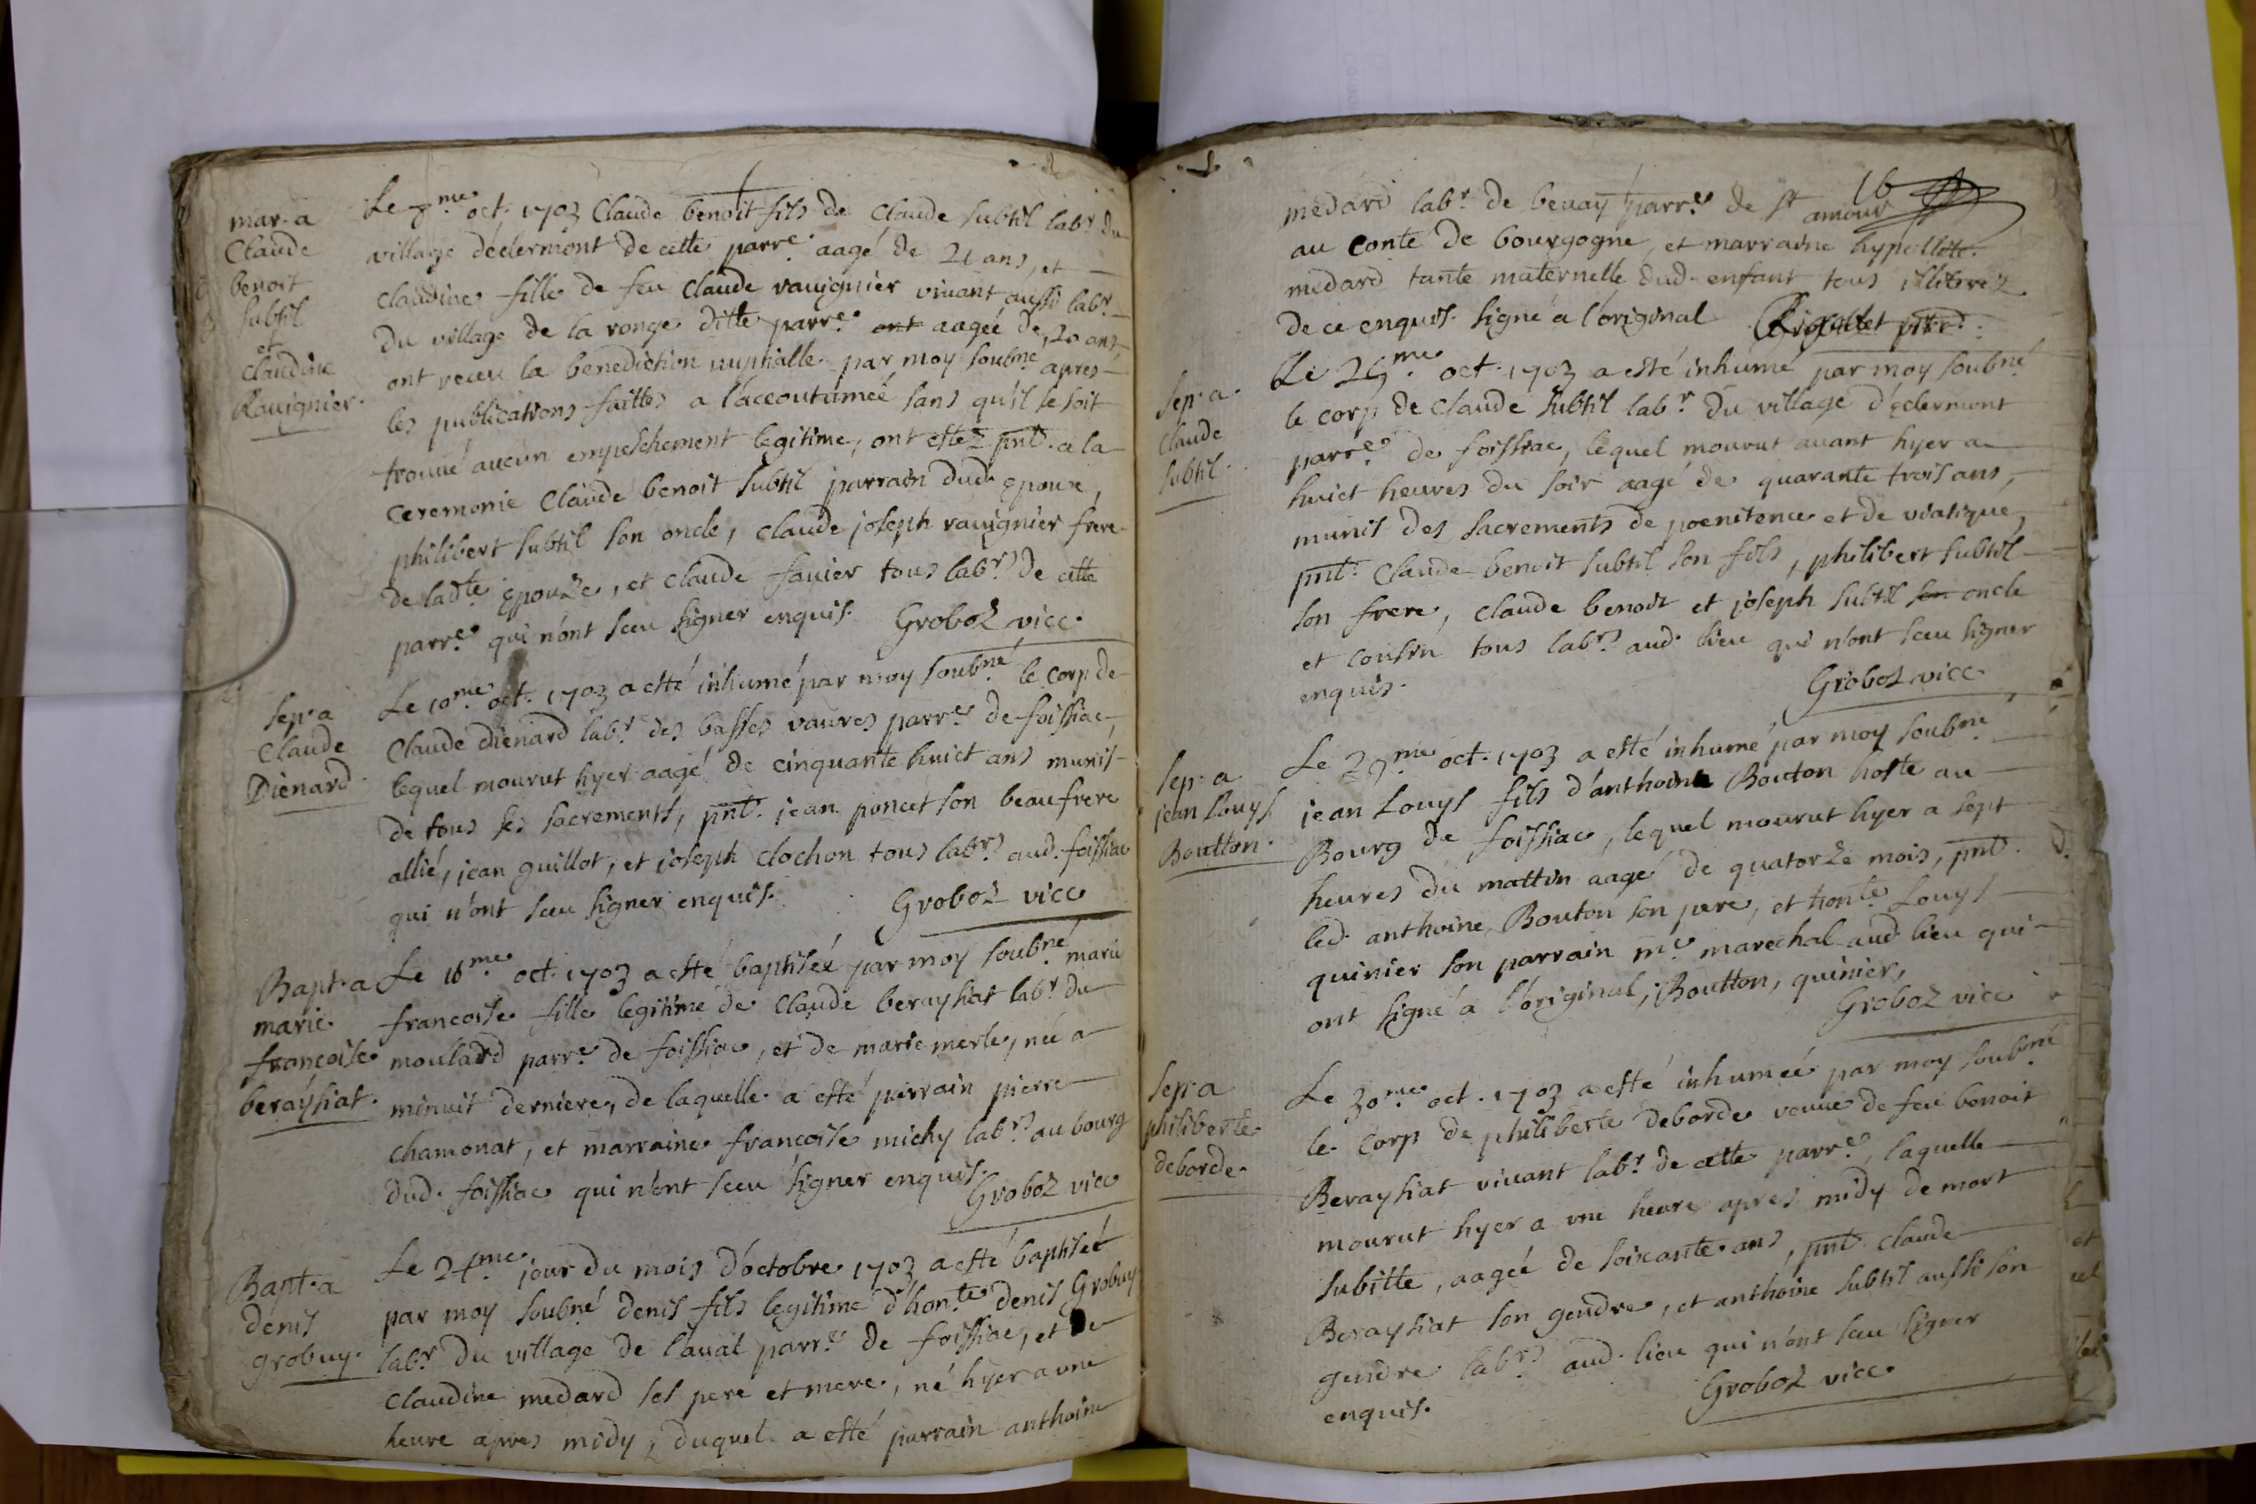 mar. a
Claude
benoit
subtil
et
claudine
Ravignier.
Le 8me oct. 1703 Claude benoit fils de Claude subtil labr. du
village déclermont de cette parre. aagé de 21 ans, et
claudine fille de feu Claude ravignier vivant aussi labr.
du village de la ronge ditte parre. ont aageé de 20 ans,
ont receu la benediction nuptialle par moy soubné apres
les publications faittes a l'accoutumeé sans qu'il se soit
trouvé aucun empeschement legitime, ont estez pnt. a la
ceremonie Claude benoit subtil parrain dud. epoux,
philibert subtil son oncle, Claude joseph ravignier frere
de ladte. epouze, et Claude favier tous labrs. de cette
parre. qui n'ont sceu signer enquis. Groboz vicc.
Sep. a
Claude
Dienard.
Le 10me. oct. 1703 a esté inhumé par moy soubné le corp de
Claude dienard labr. des basses vavres parre. de foissiac,
lequel mourut hyer aagé de cinquante huict ans munis
de tous ses sacrements, pnt. jean poncet son beaufrere
allié, jean guillot, et joseph clochon tous labrs. aud. foissiac
qui n'ont sceu signer enquis. Groboz vicc
Bapt. a
marie
françoise
beraysiat.
Le 16me. oct. 1703 a esté baptiseé par moy soubné marie
francoise fille legitime de Claude beraysiat labr. du
moulard parre. de foissiac, et de marie merle, neé a
minuit derniere, de laquelle a esté parrain pierre
chamonat, et marraine françoise michy labrs. au bourg
dud. foissiac qui n'ont sceu signer enquis.
Groboz vicc
Bapt. a
denis
grobuy.
Le 24me. jour du mois d'octobre 1703 a esté baptiseé
par moy soubné denis fils legitime d'honte. denis Grobuy
labr. du village de laval parre. de foissiac, et de
Claudine medard ses pere et mere, né hyer a une
heure apres midy, duquel a esté parrain anthoine
16
medard labr. de bevay parre. de st amour
au conte de bourgogne, et marraine hypollite
medard tante maternelle dud. enfant tous illiterez
de ce enquis. signé a l'original
Sep. a
Claude
subtil.
Le 25me. oct. 1703 a esté inhumé par moy soubné
le corp de Claude subtil labr. du village d'eclermont
parre. de foissiac, lequel mourut avant hyer a
huict heures du soir aagé de quarante trois ans,
munis des sacrements de poenitence et de viatique,
pnt. Claude benoit subtil son fils, philibert subtil
son frere, Claude benoit et joseph subtil son oncle
et cousin tous labrs. aud. lieu qui n'ont sceu signer
enquis.
Groboz vicc
Sep. a
jean Louys
Boutton.
Le 29me oct. 1703 a esté inhumé par moy soubné
jean Louys fils d'anthoine Bouton hoste au
Bourg de foissiac, lequel mourut hyer a sept
heures du mattin aagé de quatorze mois, pnt.
led. anthoine Bouton son pere, et honte Louys
quinier son parrain me. marechal aud. lieu qui
ont signé a l'original, Boutton, quinier,
Groboz vicc
Sep. a
philiberte
deborde.
Le 30me. oct. 1703 a esté inhumeé par moy soubné
le corp de philiberte deborde veuve de feu benoit
Beraysiat vivant labr. de cette parre., laquelle
mourut hyer a une heure apres midy de mort
subitte, aageé de soixante ans, pnt. Claude
Beraysiat son gendre, et anthoine subtil aussi son
gendre labrs. aud. lieu qui n'ont sceu signer
enquis.
Groboz vicc